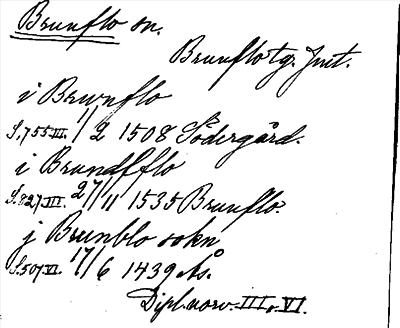 Brunflo sn.
Brunflo tg. Jmt.
i Brwnflo
S. 755 III. 1/2 1508 Södergård.
i Brundfflo
S. 827 III. 27/11 1535 Brunflo.
j Brunblo sokn
S. 507 VI. 17/6 1439 Ås.
Dipl. norv. III o. VI.